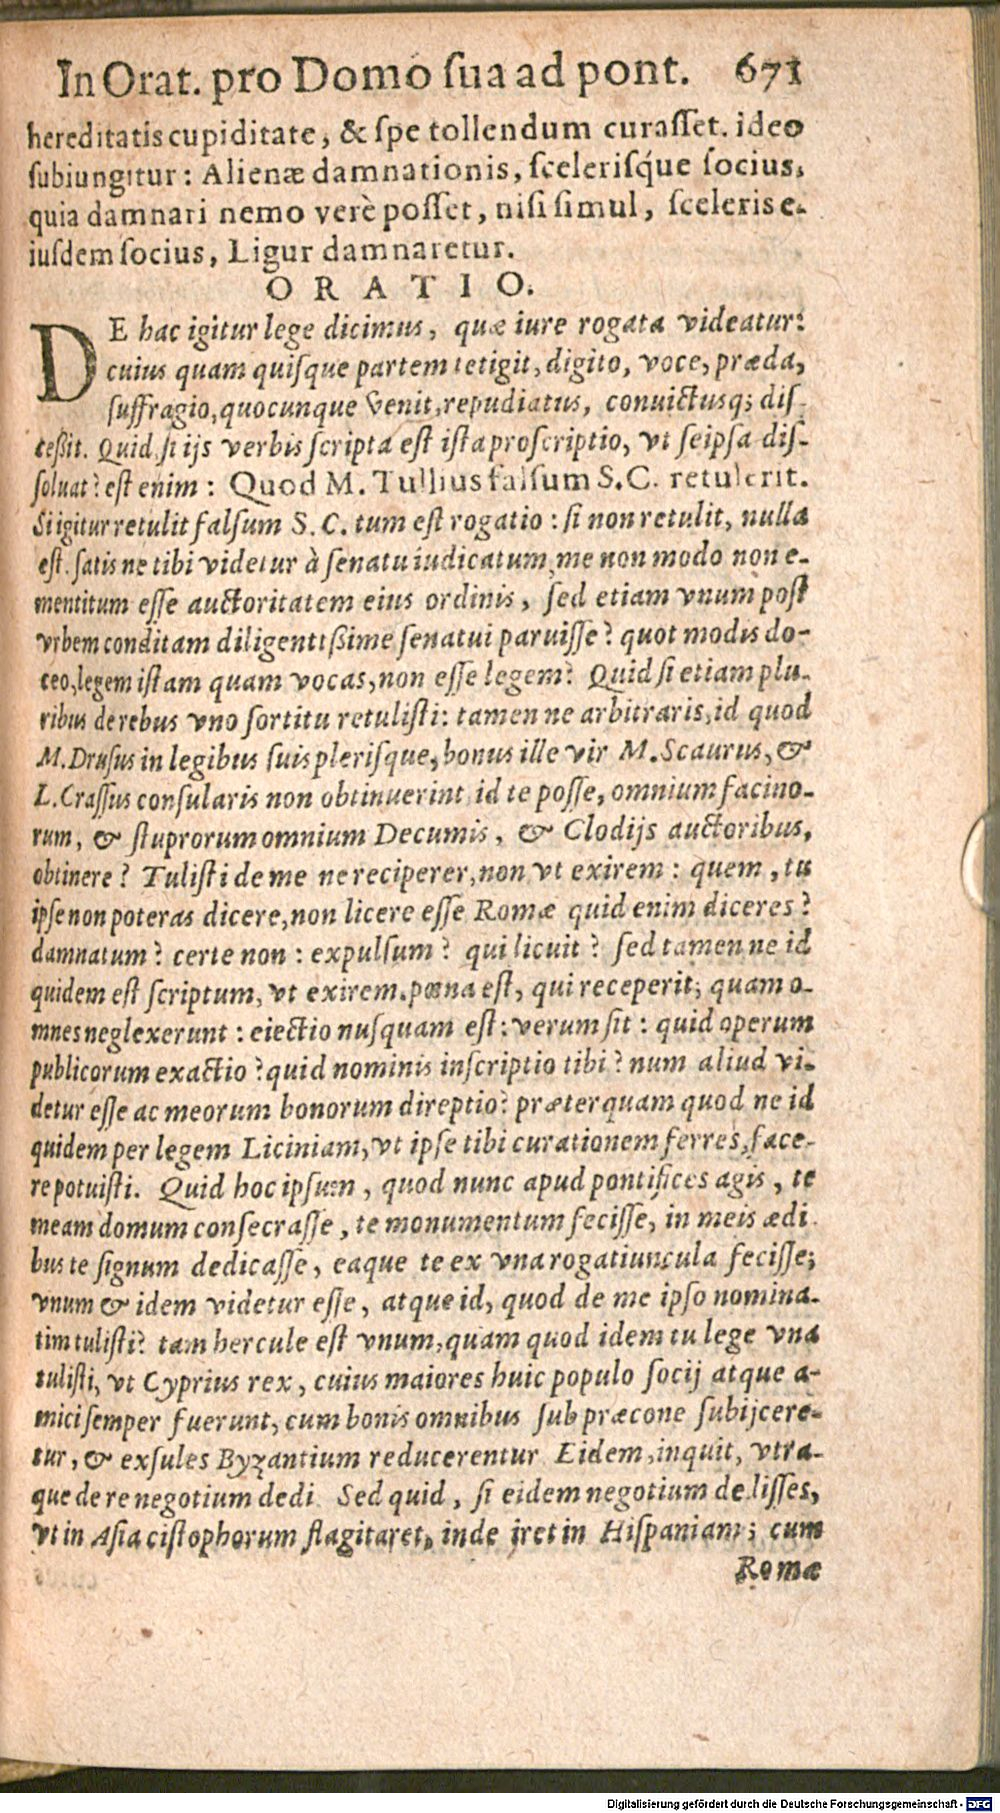 In Orat. pro Domo ſua ad pont. 671
hereditatis cupiditate, & ſpe tollendum curaſſet. ideo
ſubiungitur: Alienæ damnationis, ſceleriſq́ue ſocius,
quia damnari nemo verè poſſet, niſi ſimul, ſceleris e-
iuſdem ſocius, Ligur damnaretur.
ORATIO.
DE hac igitur lege dicimus, quæ iure rogata videatur:
cuius quam quiſque partem tetigit, digito, voce, præda,
ſuffragio, quocunque venit, repudiatus, conuictusq; diſ-
ceßit. Quid ſi ijs verbis ſcripta eſt iſta proſcriptio, vt ſeipſa diſ-
ſoluat? eſt enim: Quod M. Tullius falſum S.C. retulerit.
Si igitur retulit falſum S.C. tum eſt rogatio: ſi non retulit, nulla
eſt. ſatis ne tibi videtur à ſenatu iudicatum, me non modo non e-
mentitum eſſe auctoritatem eius ordinis, ſed etiam vnum poſt
vrbem conditam diligentißime ſenatui paruiſſe? quot modis do-
ceo, legem iſtam quam vocas, non eſſe legem? Quid ſi etiam plu-
ribus de rebus vno ſortitu retuliſti: tamen ne arbitraris, id quod
M. Druſus in legibus ſuis pleriſque, bonus ille vir M. Scaurus, &
L. Craſſus conſularis non obtinuerint id te poſſe, omnium facino-
rum, & ſtuprorum omnium Decumis, & Clodijs auctoribus,
obtinere? Tuliſti de me ne reciperer, non vt exirem: quem, tu
ipſe non poteras dicere, non licere eſſe Romæ quid enim diceres?
damnatum? certe non: expulſum? qui licuit? ſed tamen ne id
quidem eſt ſcriptum, vt exirem. pœna eſt, qui receperit; quam o-
mnes neglexerunt: eiectio nuſquam eſt: verum ſit: quid operum
publicorum exactio? quid nominis inſcriptio tibi? num aliud vi-
detur eſſe ac meorum bonorum direptio? præterquam quod ne id
quidem per legem Liciniam, vt ipſe tibi curationem ferres, face-
re potuiſti. Quid hoc ipſum, quod nunc apud pontifices agis, te
meam domum conſecraſſe, te monumentum feciſſe, in meis ædi-
bus te ſignum dedicaſſe, eaque te ex vna rogatiuncula feciſſe;
vnum & idem videtur eſſe, atque id, quod de me ipſo nomina-
tim tuliſti? tam hercule eſt vnum, quam quod idem tu lege vna
tuliſti, vt Cyprius rex, cuius maiores huic populo ſocij atque a-
mici ſemper fuerunt, cum bonis omnibus ſub præcone ſubijcere-
tur, & exſules Byzantium reducerentur Eidem, inquit, vtra-
que de re negotium dedi. Sed quid, ſi eidem negotium dediſſes,
vt in Aſia ciſtophorum flagitaret, inde iret in Hiſpaniam; cum
Romæ
Digitalisierung gefördert durch die Deutsche Forschungsgemeinschaft - DFG